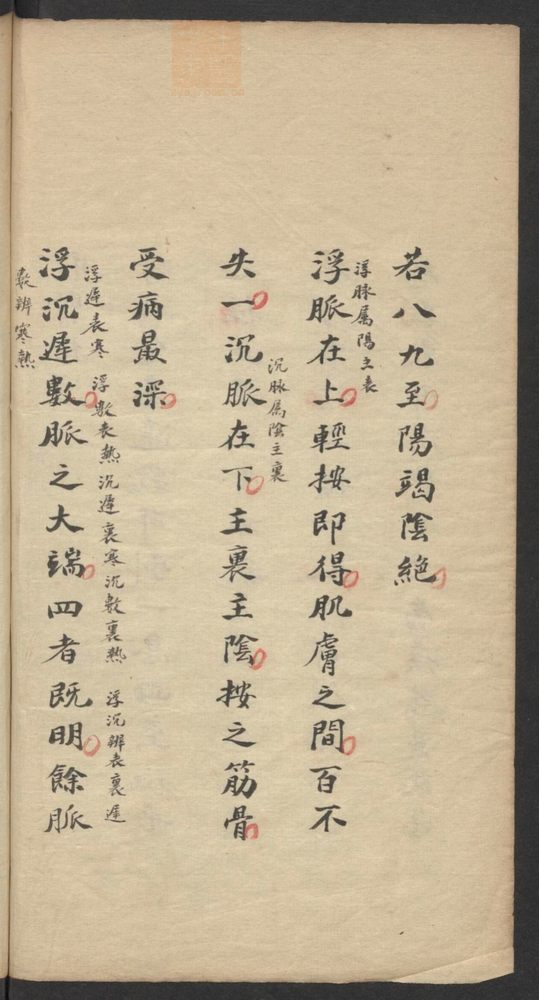 若八九至陽竭陰絕
浮脈屬陽主表
浮脈在上輕按即得肌膚之間百不
沉脈屬陰主裏
失一沉脈在下主裏主陰按之筋骨
受病最深
浮遲表寒 浮數表熱 沉遲裏寒 沉數裏熱 浮沉辨表裏遲
浮沉遲數脈之大端四者既明餘脈
數辨寒熱